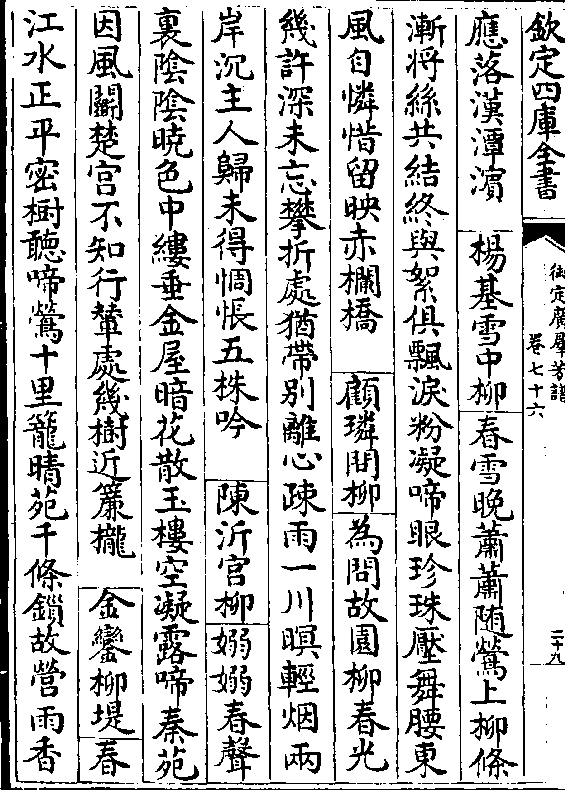 欽定四庫全書
御定廣羣芳譜
卷七十六
二十九
應落漢潭濵 楊基雪中柳 春雪晚蕭蕭随鶯上柳條
漸将絲共結終與絮俱飄淚粉凝啼眼珍珠壓舞腰東
風自憐惜留映赤欄橋 顧璘問柳 為問故園柳春光
幾許深未忘攀折處猶帶别離心疎雨一川暝輕烟兩
岸沉主人歸未得惆悵五株吟 陳沂官柳 嫋嫋春聲
裏陰陰曉色中縷垂金屋暗花散玉樓空凝露啼秦苑
因風鬭楚宫不知行輦處幾樹近簾櫳 金鑾柳堤 春
江水正平密樹聽啼鶯十里籠晴苑千條鎖故營雨香